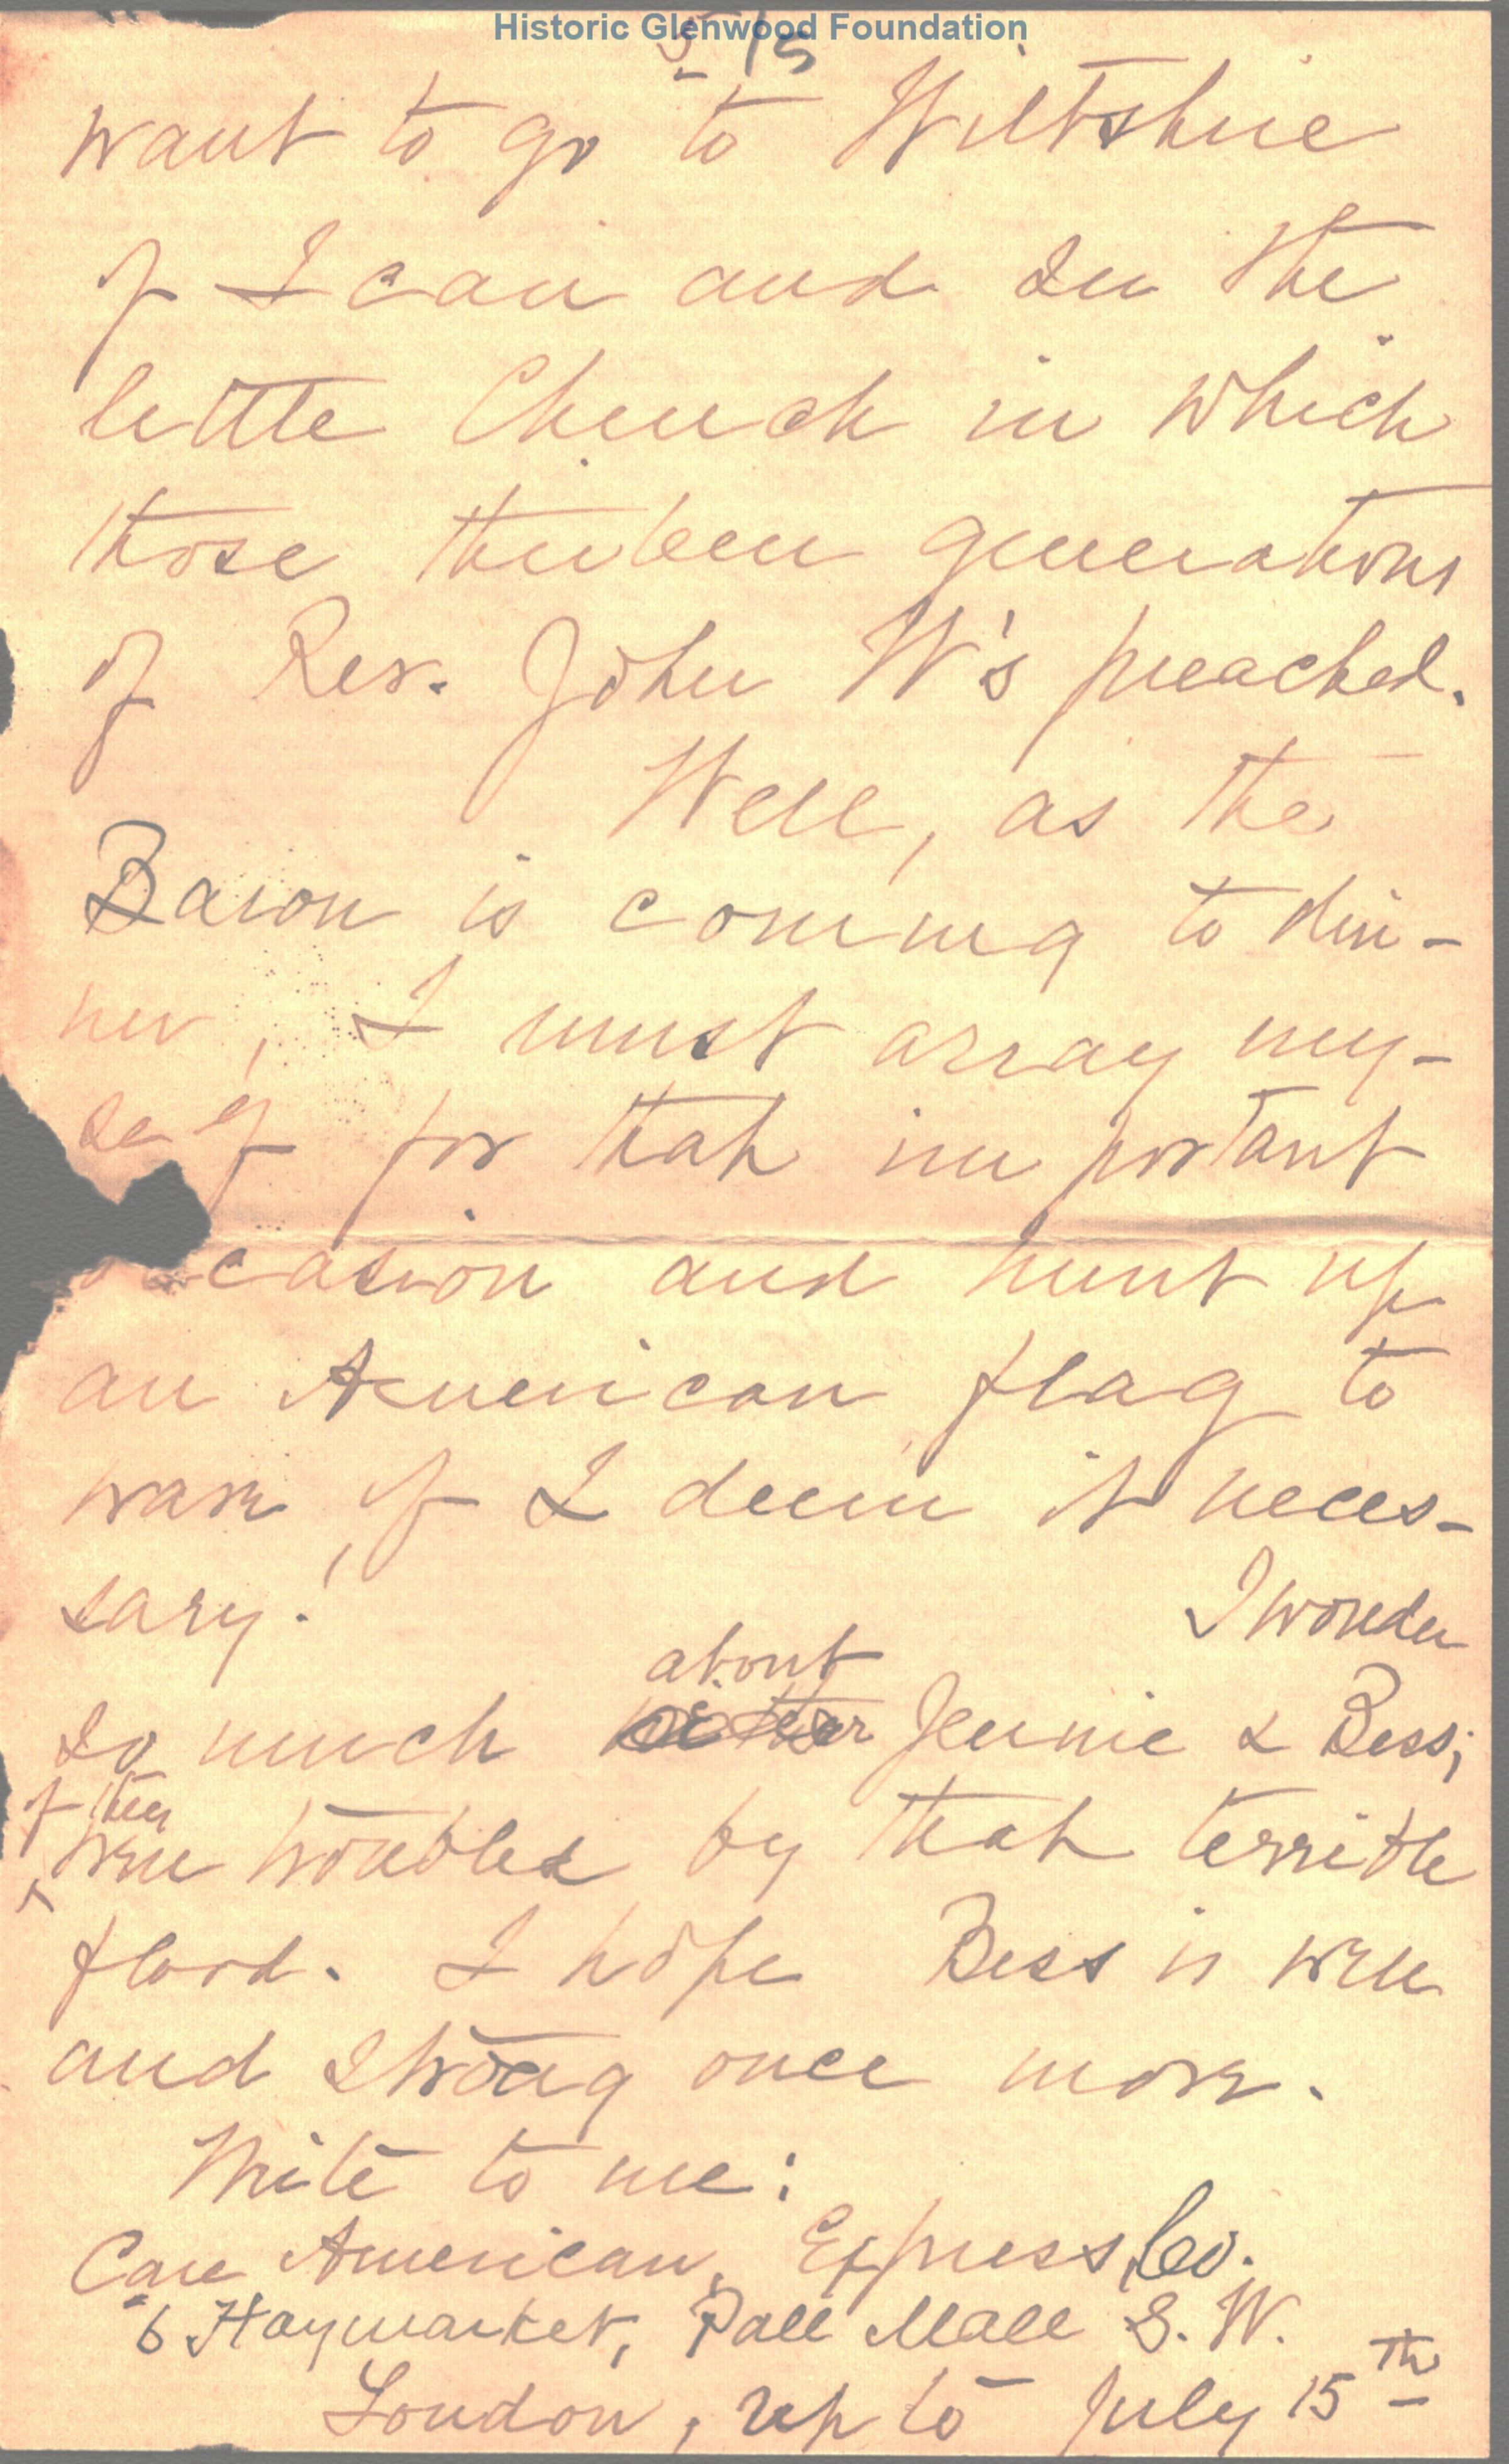 Historic Glenwood Foundation
5-15
want to go to Wiltshire
if I can and see the
little Church in which
those thirteen generations
of Rev. John W's preached.
Well, as the
Baron is coming to din-
ner, I must array my-
self for that important
occasion and hunt up
an American flag to
wave, if I deem it neces-
sary!
I wonder
about
so much Jennie & Bess;
if they
were troubled by that terrible
flood. I hope Bess is well
and strong once more.
Write to me:
Care American Express Co.
6 Haymarket, Pall Mall S.W.
London, up to July 15th